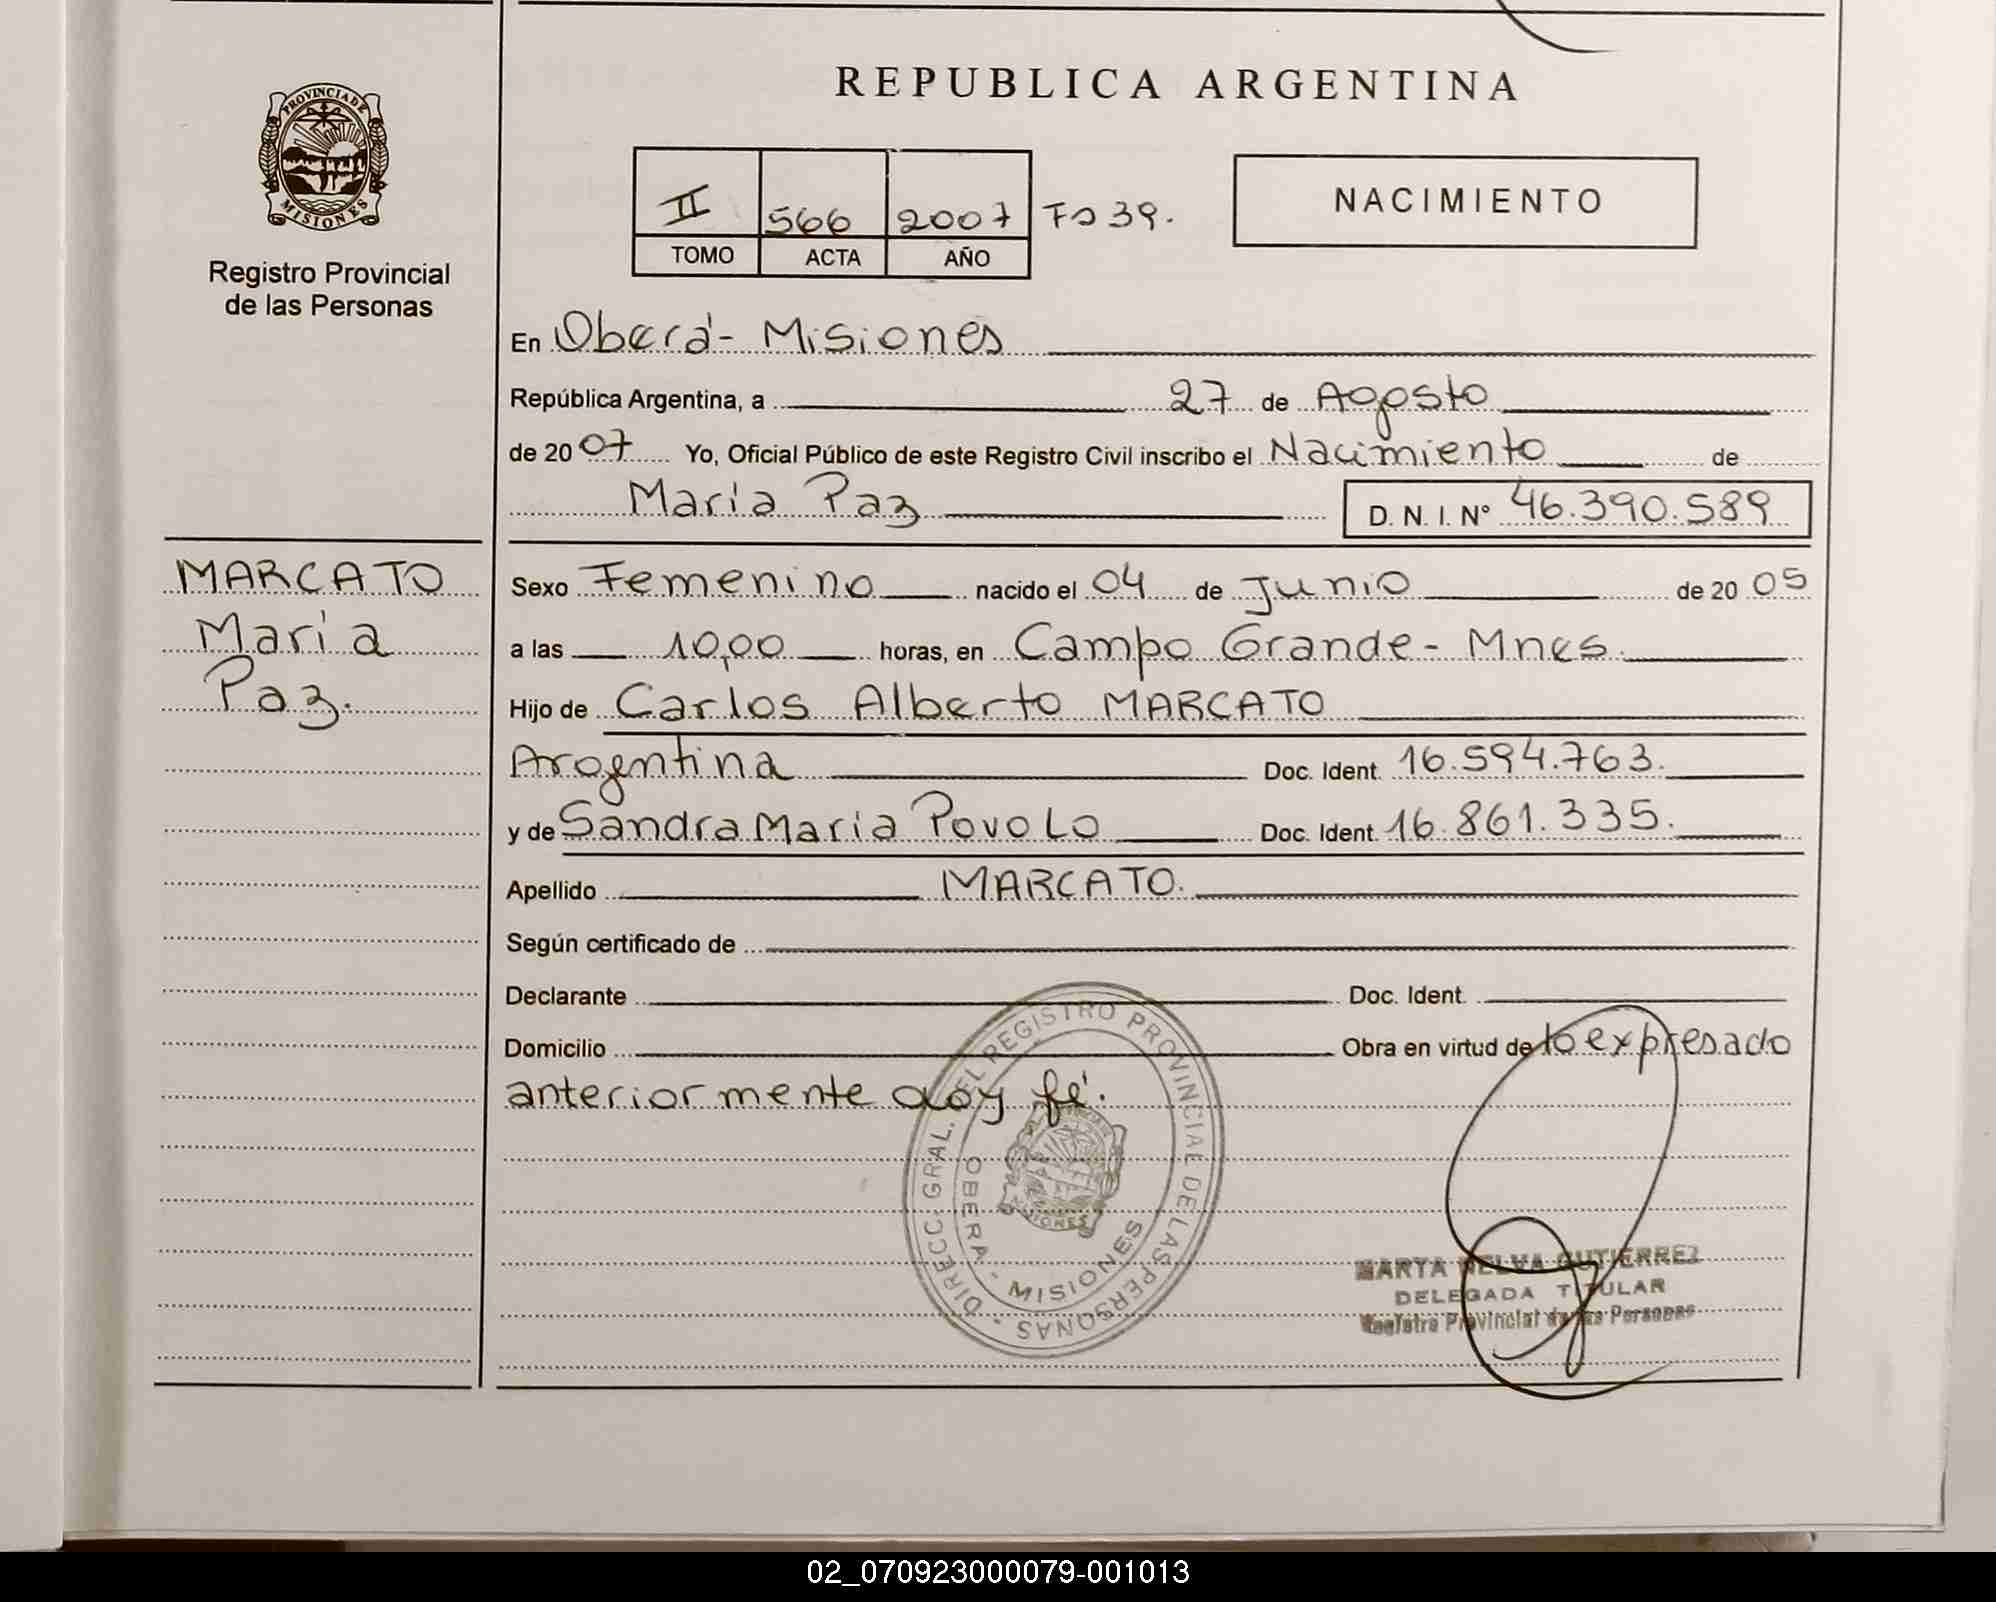 REPUBLICA ARGENTINA
PROVINCIA DE
MISIONES
Registro Provincial
de las Personas
II 566 2007 Fo 39.
TOMO ACTA AÑO
NACIMIENTO
En Oberá - Misiones
República Argentina, a 27 de Agosto
de 2007 Yo, Oficial Público de este Registro Civil inscribo el Nacimiento de
Maria Paz D. N. I. N° 46.390.589
MARCATO
Maria
Paz.
Sexo Femenino nacido el 04 de Junio de 2005
a las 10,00 horas, en Campo Grande - Mnes.
Hijo de Carlos Alberto MARCATO
Argentina Doc. Ident. 16.594.763.
y de Sandra Maria Povolo Doc. Ident. 16.861.335.
Apellido MARCATO.
Según certificado de
Declarante Doc. Ident.
Domicilio Obra en virtud de lo expresado
anteriormente doy fé.
DIRECC. GRAL. DEL REGISTRO PROVINCIAL DE LAS PERSONAS
OBERA - MISIONES
MARTA NELVA GUTIERREZ
DELEGADA TITULAR
Registro Provincial de las Personas
02_070923000079-001013